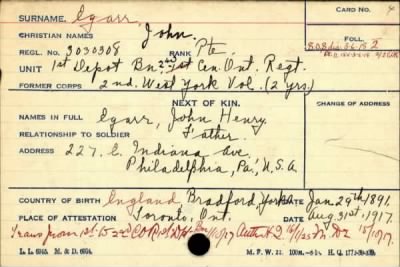 CARD NO.
SURNAME. Egarr,
CHRISTIAN NAMES John.
FOLL.
REGL. NO. 3030308 RANK Pte
UNIT 1st Depot Bn. 2nd 1st Cen. Ont. Regt.
FORMER CORPS 2nd. West York Vol. (2 yrs.)
NEXT OF KIN.
CHANGE OF ADDRESS
NAMES IN FULL Egarr, John Henry.
RELATIONSHIP TO SOLDIER Father.
ADDRESS 227. E. Indiana Ave.
Philadelphia, Pa., U.S.A
COUNTRY OF BIRTH England, Bradford Yorks DATE Jan 29th 1891.
PLACE OF ATTESTATION Toronto, Ont. DATE Aug. 31st 1917.
Trans from 1st to 2nd
L. L. M. & D. M. F. W. 22.